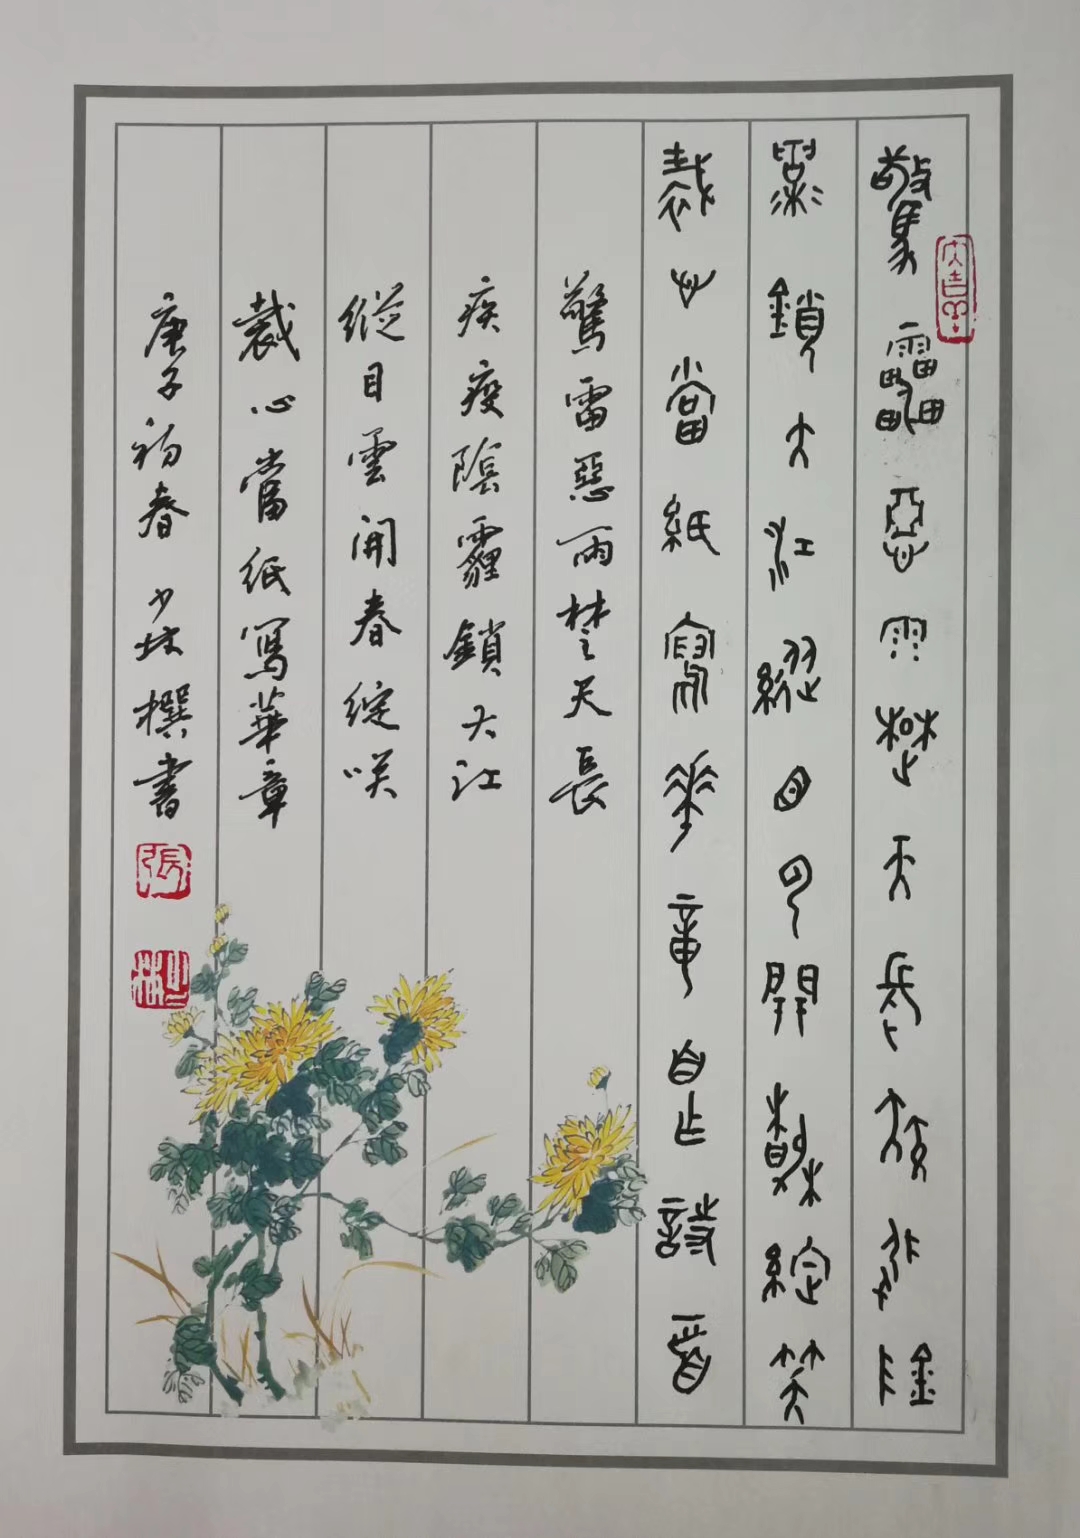 驚靁惡雨楚天長疾疫陰
霾鎖大江縱目云開春綻笑
裁心當紙寫華章自作詩一首
驚雷惡雨楚天長
疾疫陰霾鎖大江
縱目雲開春綻咲
裁心當紙寫華章
庚子初春 少林撰書
張
少林